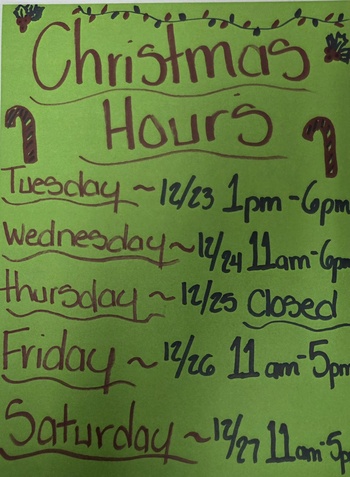 Christmas
Hours
Tuesday ~ 12/23 1pm-6pm
Wednesday ~ 12/24 11am-6pm
Thursday ~ 12/25 Closed
Friday ~ 12/26 11am-5pm
Saturday ~ 12/27 11am-5p